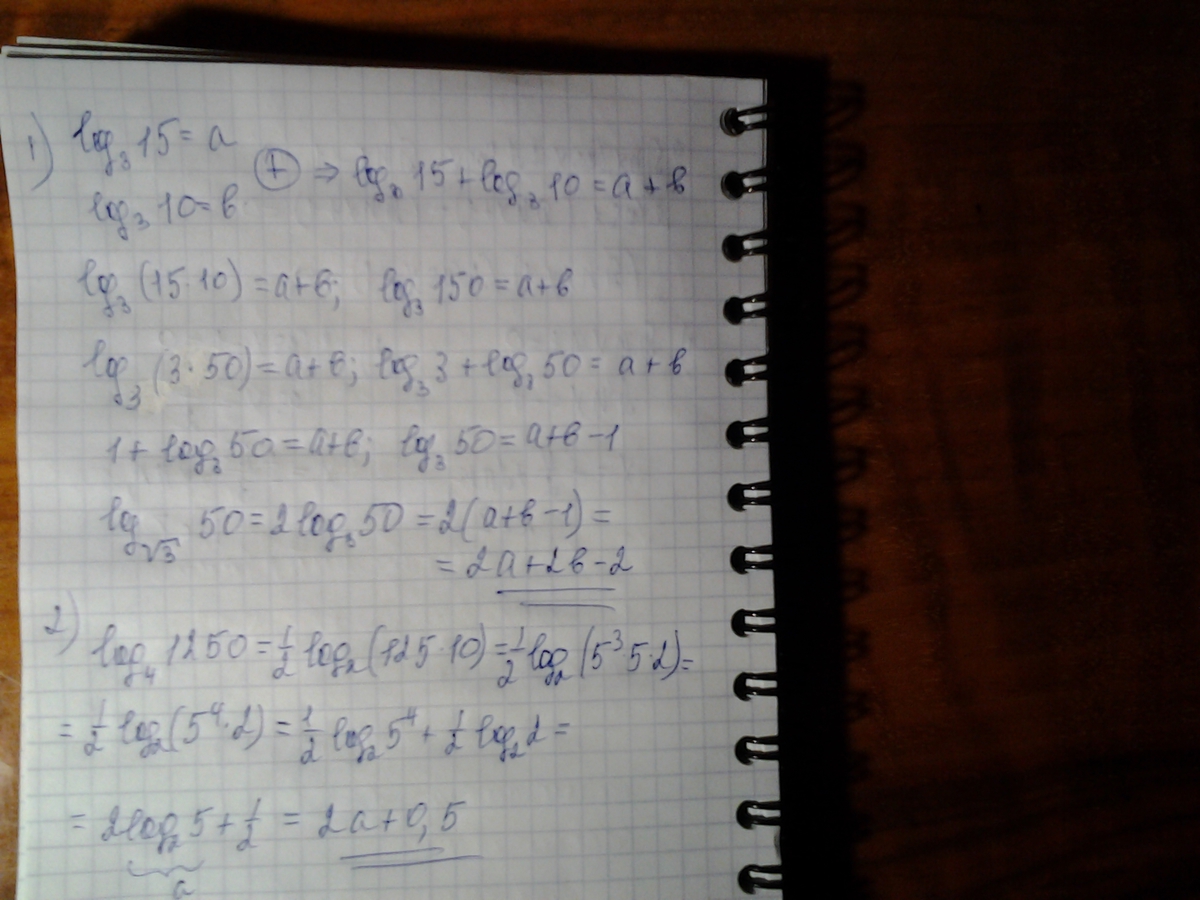 1) log₃ 15 = a
⊕ ⇒ log₃ 15 + log₃ 10 = a + b
log₃ 10 = b
log₃ (15·10) = a+b; log₃ 150 = a+b
log₃ (3·50) = a+b; log₃ 3 + log₃ 50 = a+b
1 + log₃ 50 = a+b; log₃ 50 = a+b-1
log_√3 50 = 2log₃ 50 = 2(a+b-1) =
= 2a+2b-2
2) log₄ 1250 = 1/2 log₂ (125·10) = 1/2 log₂ (5³·5·2) =
= 1/2 log₂ (5⁴·2) = 1/2 log₂ 5⁴ + 1/2 log₂ 2 =
= 2log₂ 5 + 1/2 = 2a+0,5
a